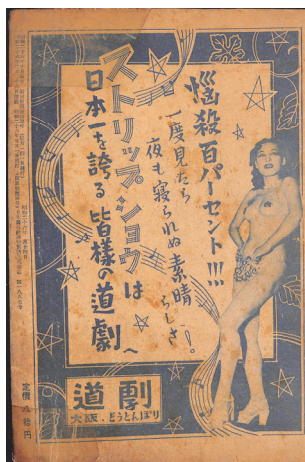 悩殺百パーセント!!!
一度見たら
夜も寝られぬ素晴らしさ!
ストリップ・ショウは
日本一を誇る皆様の道劇へ
道劇
大阪・どうとんぼり
定價八拾円